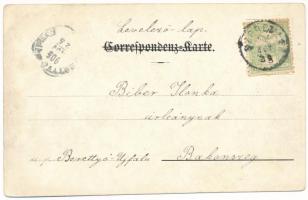 Levelező-lap.
Correspondenz-Karte.
Biber Ilonka
urleánynak
u.p. Berettyó-Ujfalu Bakonszeg